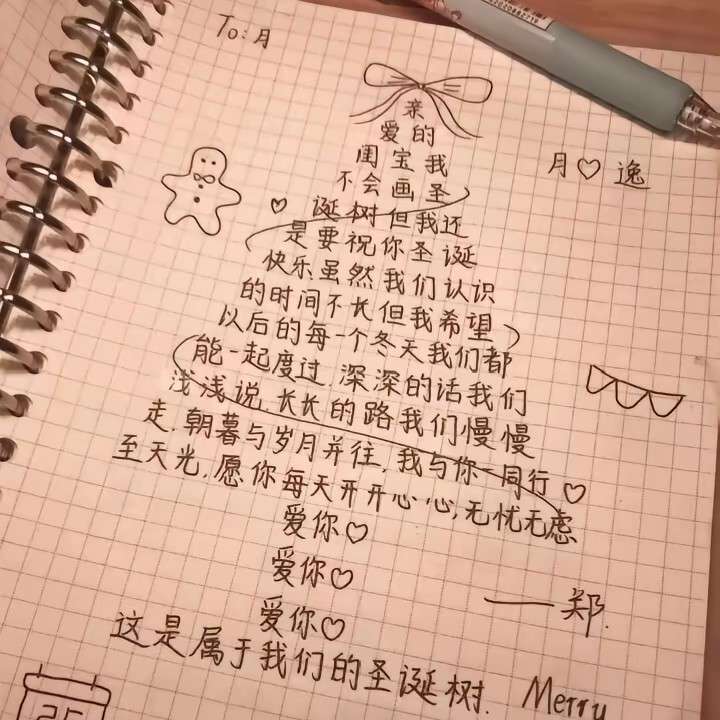 To:月
亲
爱的
闺宝我
月♡逸
不会画圣
诞树但我还
是要祝你圣诞
快乐虽然我们认识
的时间不长但我希望
以后的每一个冬天我们都
能一起度过,深深的话我们
浅浅说,长长的路我们慢慢
走.朝暮与岁月并往,我与你一同行
至天光,愿你每天开开心心,无忧无虑
爱你♡
爱你♡
爱你♡
——郑.
这是属于我们的圣诞树. Merry
25